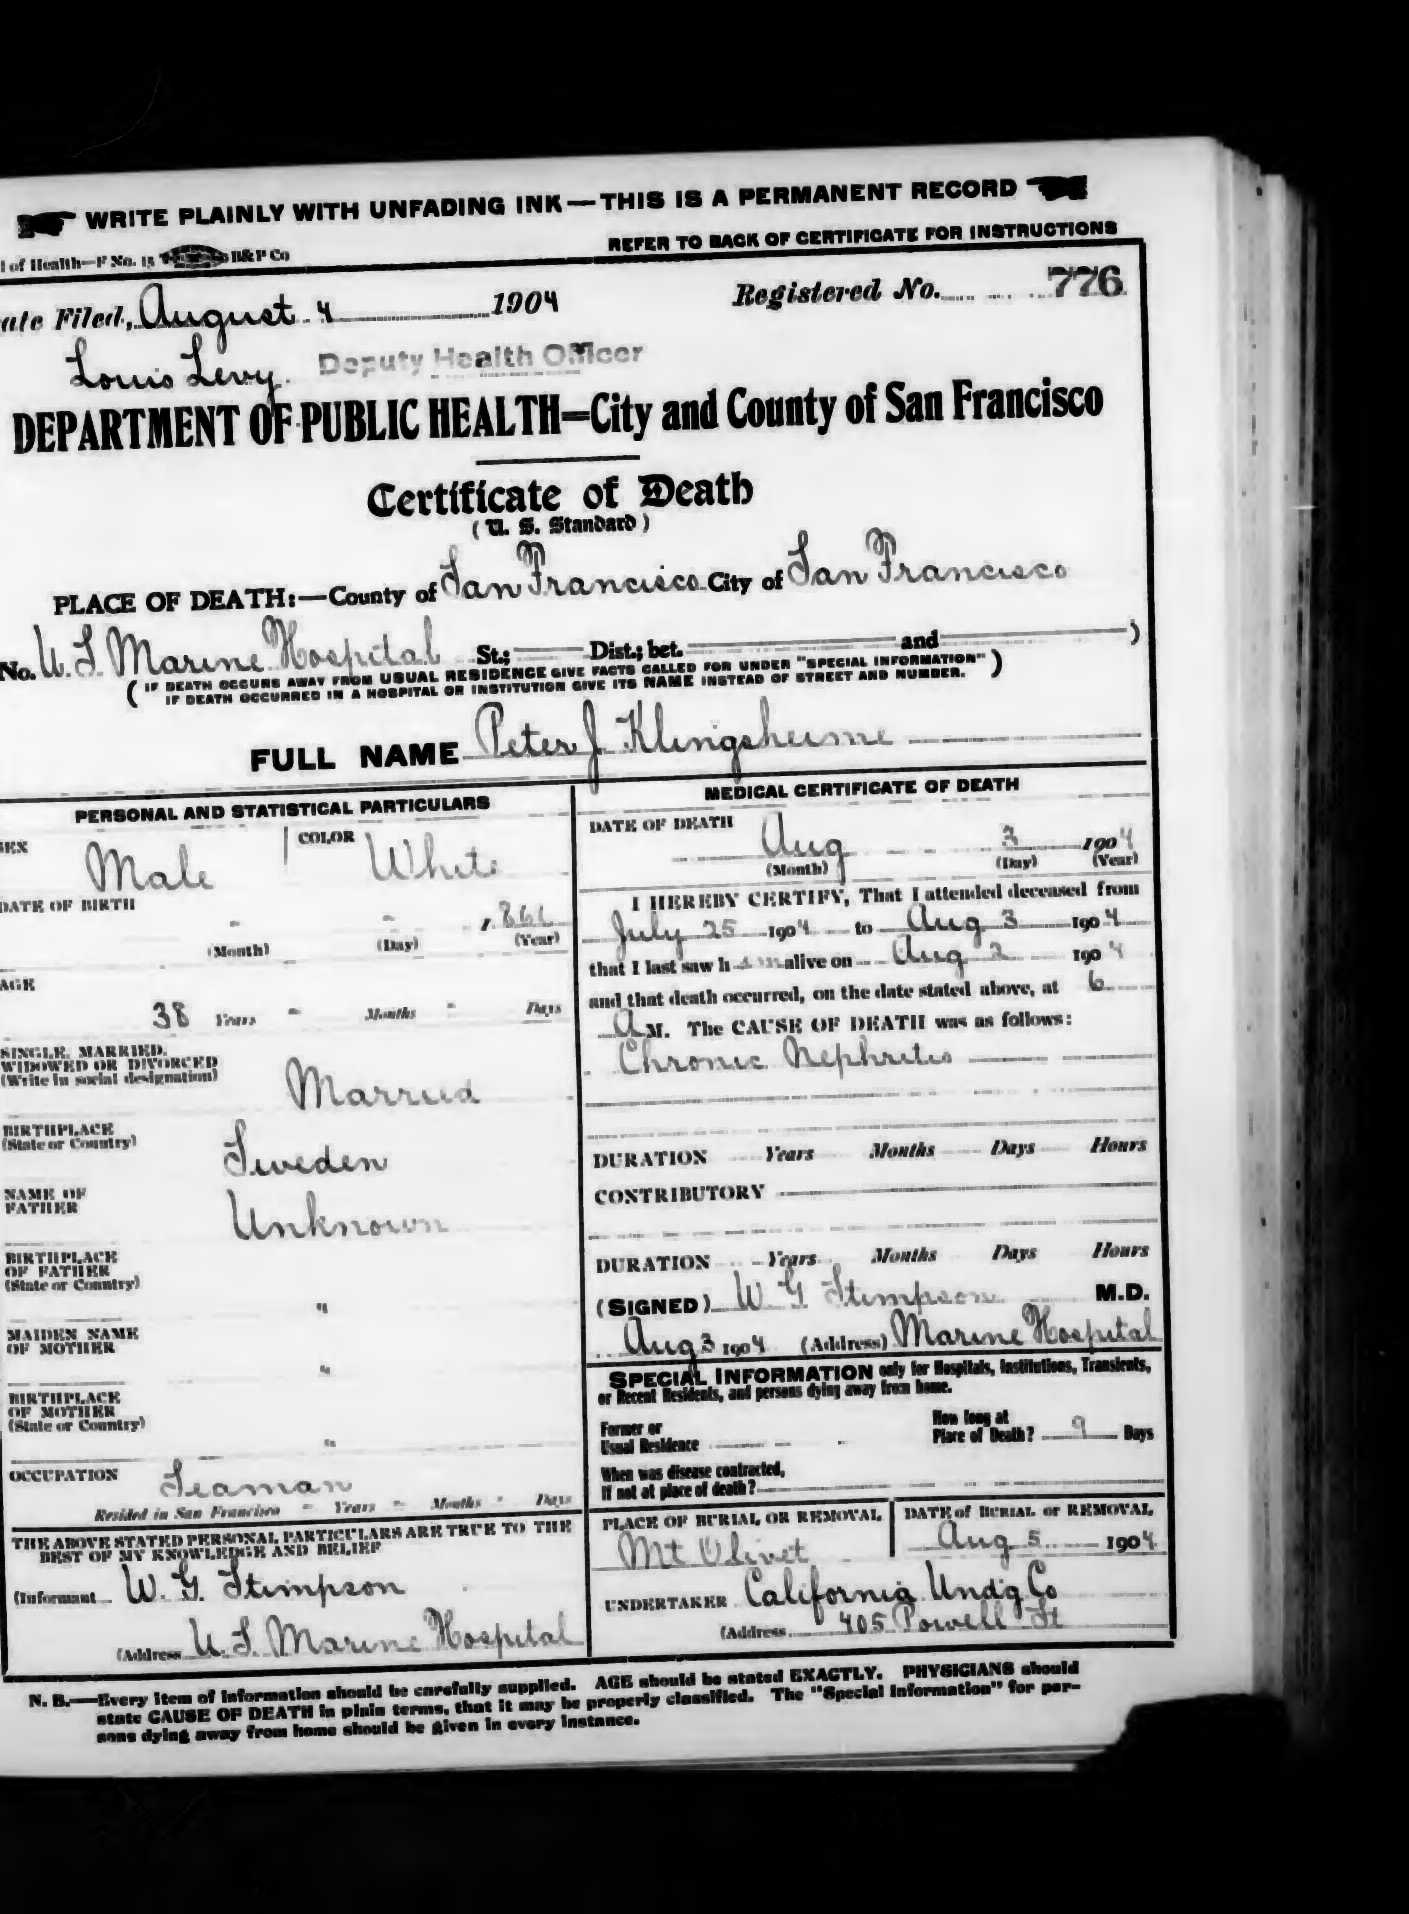 WRITE PLAINLY WITH UNFADING INK—THIS IS A PERMANENT RECORD
of Health—F No. 15 B&P Co
REFER TO BACK OF CERTIFICATE FOR INSTRUCTIONS
ate Filed, August 4 1904 Registered No. 776
Louis Levy. Deputy Health Officer
DEPARTMENT OF PUBLIC HEALTH—City and County of San Francisco
Certificate of Death
(U. S. Standard)
PLACE OF DEATH:—County of San Francisco City of San Francisco
No. U. S. Marine Hospital St.; Dist.; bet. and )
( IF DEATH OCCURS AWAY FROM USUAL RESIDENCE GIVE FACTS CALLED FOR UNDER "SPECIAL INFORMATION" )
IF DEATH OCCURRED IN A HOSPITAL OR INSTITUTION GIVE ITS NAME INSTEAD OF STREET AND NUMBER.
FULL NAME Peter J Klingsheime
PERSONAL AND STATISTICAL PARTICULARS
SEX Male COLOR White
DATE OF BIRTH
- - 1866
(Month) (Day) (Year)
AGE
38 Years - Months - Days
SINGLE, MARRIED,
WIDOWED OR DIVORCED
(Write in social designation)
Married
BIRTHPLACE
(State or Country)
Sweden
NAME OF
FATHER
Unknown
BIRTHPLACE
OF FATHER
(State or Country)
"
MAIDEN NAME
OF MOTHER
"
BIRTHPLACE
OF MOTHER
(State or Country)
"
OCCUPATION Seaman
Resided in San Francisco - Years - Months - Days
THE ABOVE STATED PERSONAL PARTICULARS ARE TRUE TO THE
BEST OF MY KNOWLEDGE AND BELIEF
(Informant W. G. Stimpson
(Address U. S. Marine Hospital
MEDICAL CERTIFICATE OF DEATH
DATE OF DEATH
Aug 3 1904
(Month) (Day) (Year)
I HEREBY CERTIFY, That I attended deceased from
July 25 1904 to Aug 3 1904
that I last saw him alive on Aug 2 1904
and that death occurred, on the date stated above, at 6
A M. The CAUSE OF DEATH was as follows:
Chronic Nephritis
DURATION Years Months Days Hours
CONTRIBUTORY
DURATION Years Months Days Hours
(SIGNED) W G Stimpson M.D.
Aug 3 1904 (Address) Marine Hospital
SPECIAL INFORMATION only for Hospitals, Institutions, Transients,
or Recent Residents, and persons dying away from home.
Former or
Usual Residence
How long at
Place of Death? 9 Days
When was disease contracted,
If not at place of death?
PLACE OF BURIAL OR REMOVAL
Mt Olivet
DATE of BURIAL or REMOVAL
Aug 5 1904
UNDERTAKER California Undg Co
(Address 405 Powell St
N. B.—Every item of information should be carefully supplied. AGE should be stated EXACTLY. PHYSICIANS should
state CAUSE OF DEATH in plain terms, that it may be properly classified. The "Special Information" for per-
sons dying away from home should be given in every instance.